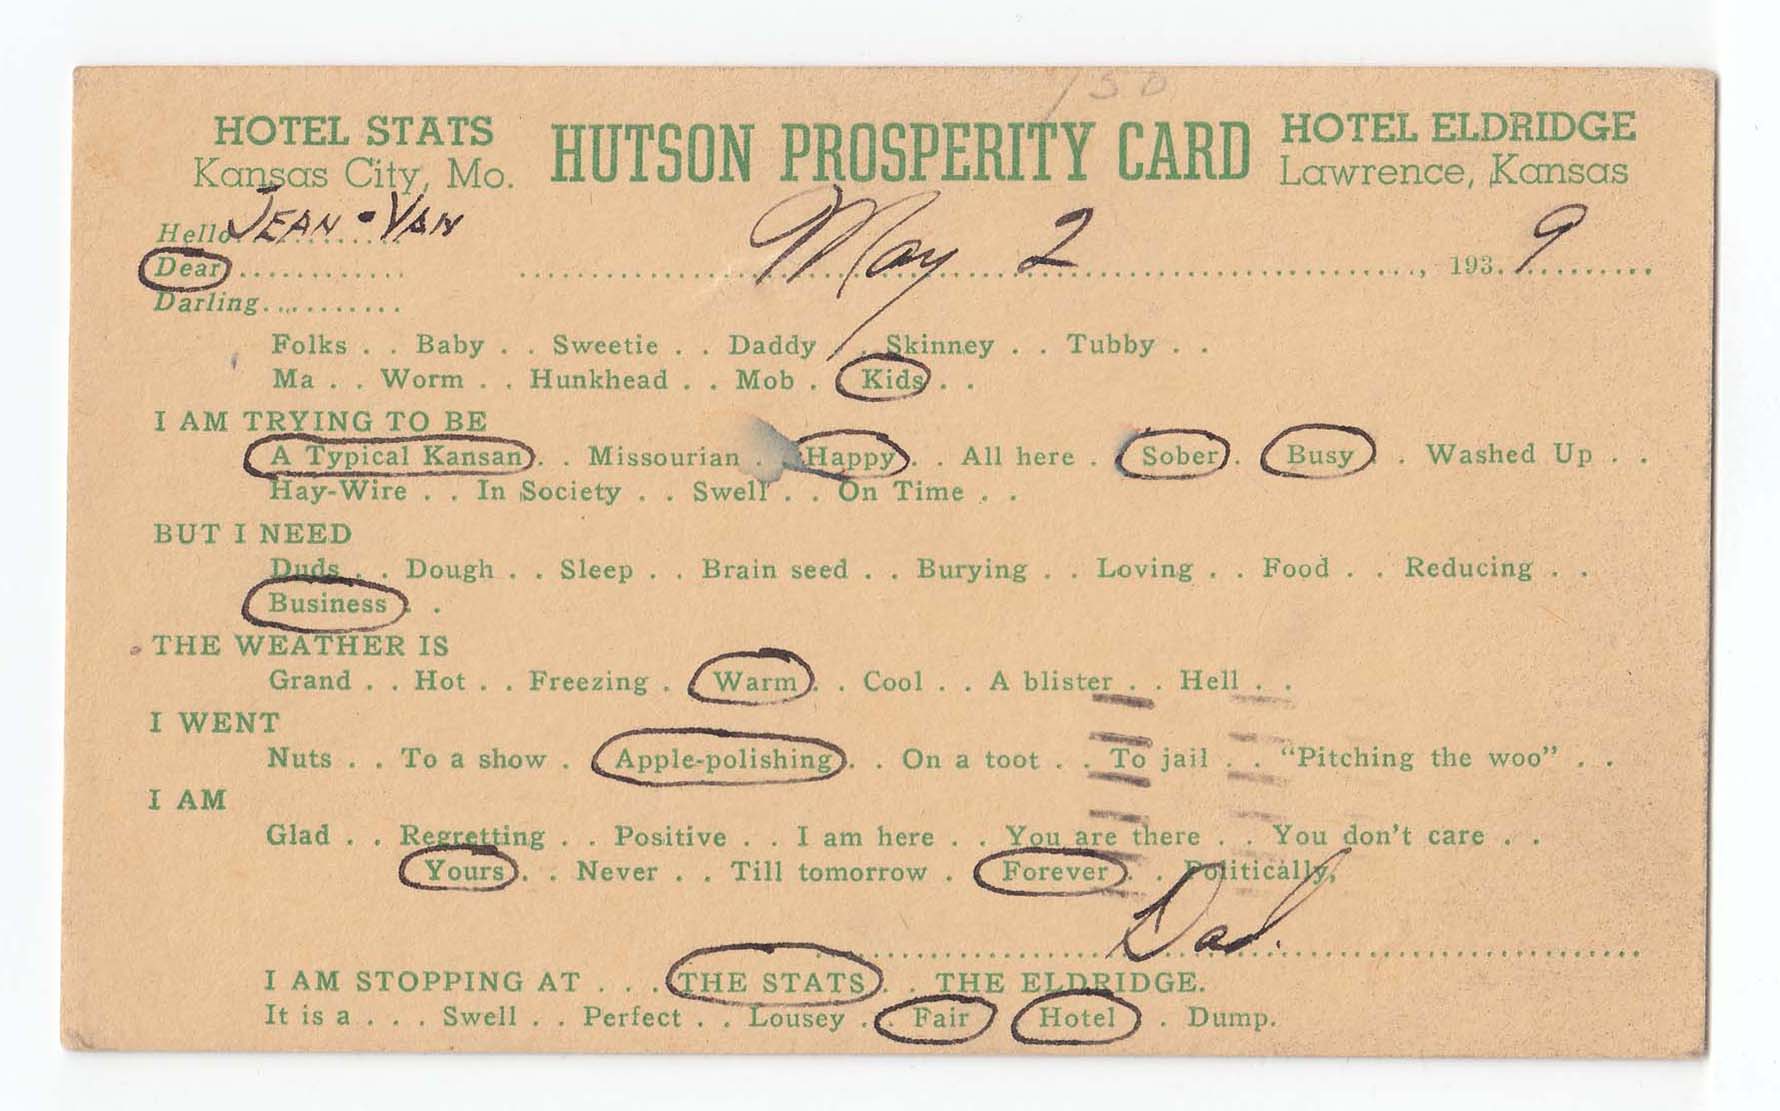 150
HOTEL STATS
Kansas City, Mo.
HUTSON PROSPERITY CARD
HOTEL ELDRIDGE
Lawrence, Kansas
Hello JEAN • VAN
Dear............ May 2, 193.9
Darling............
Folks . . Baby . . Sweetie . . Daddy . . Skinney . . Tubby . .
Ma . . Worm . . Hunkhead . . Mob . . Kids . .
I AM TRYING TO BE
A Typical Kansan . . Missourian . . Happy . . All here . . Sober . . Busy . . Washed Up . .
Hay-Wire . . In Society . . Swell . . On Time . .
BUT I NEED
Duds . . Dough . . Sleep . . Brain seed . . Burying . . Loving . . Food . . Reducing . .
Business . .
THE WEATHER IS
Grand . . Hot . . Freezing . . Warm . . Cool . . A blister . . Hell . .
I WENT
Nuts . . To a show . . Apple-polishing . . On a toot . . To jail . . “Pitching the woo” . .
I AM
Glad . . Regretting . . Positive . . I am here . . You are there . . You don't care . .
Yours . . Never . . Till tomorrow . . Forever . . Politically,
Dad.
I AM STOPPING AT . . . THE STATS . . THE ELDRIDGE.
It is a . . . Swell . . Perfect . . Lousey . . Fair . . Hotel . . Dump.